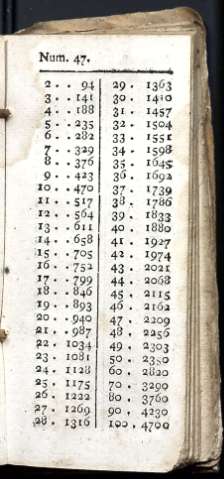 Num. 47.
2 . . 94
3 . . 141
4 . . 188
5 . . 235
6 . . 282
7 . . 329
8 . . 376
9 . . 423
10 . . 470
11 . . 517
12 . . 564
13 . . 611
14 . . 658
15 . . 705
16 . . 752
17 . . 799
18 . . 846
19 . . 893
20 . . 940
21 . . 987
22 . 1034
23 . 1081
24 . 1128
25 . 1175
26 . 1222
27 . 1269
28 . 1316
29 . 1363
30 . 1410
31 . 1457
32 . 1504
33 . 1551
34 . 1598
35 . 1645
36 . 1692
37 . 1739
38 . 1786
39 . 1833
40 . 1880
41 . 1927
42 . 1974
43 . 2021
44 . 2068
45 . 2115
46 . 2162
47 . 2209
48 . 2256
49 . 2303
50 . 2350
60 . 2820
70 . 3290
80 . 3760
90 . 4230
100 . 4700